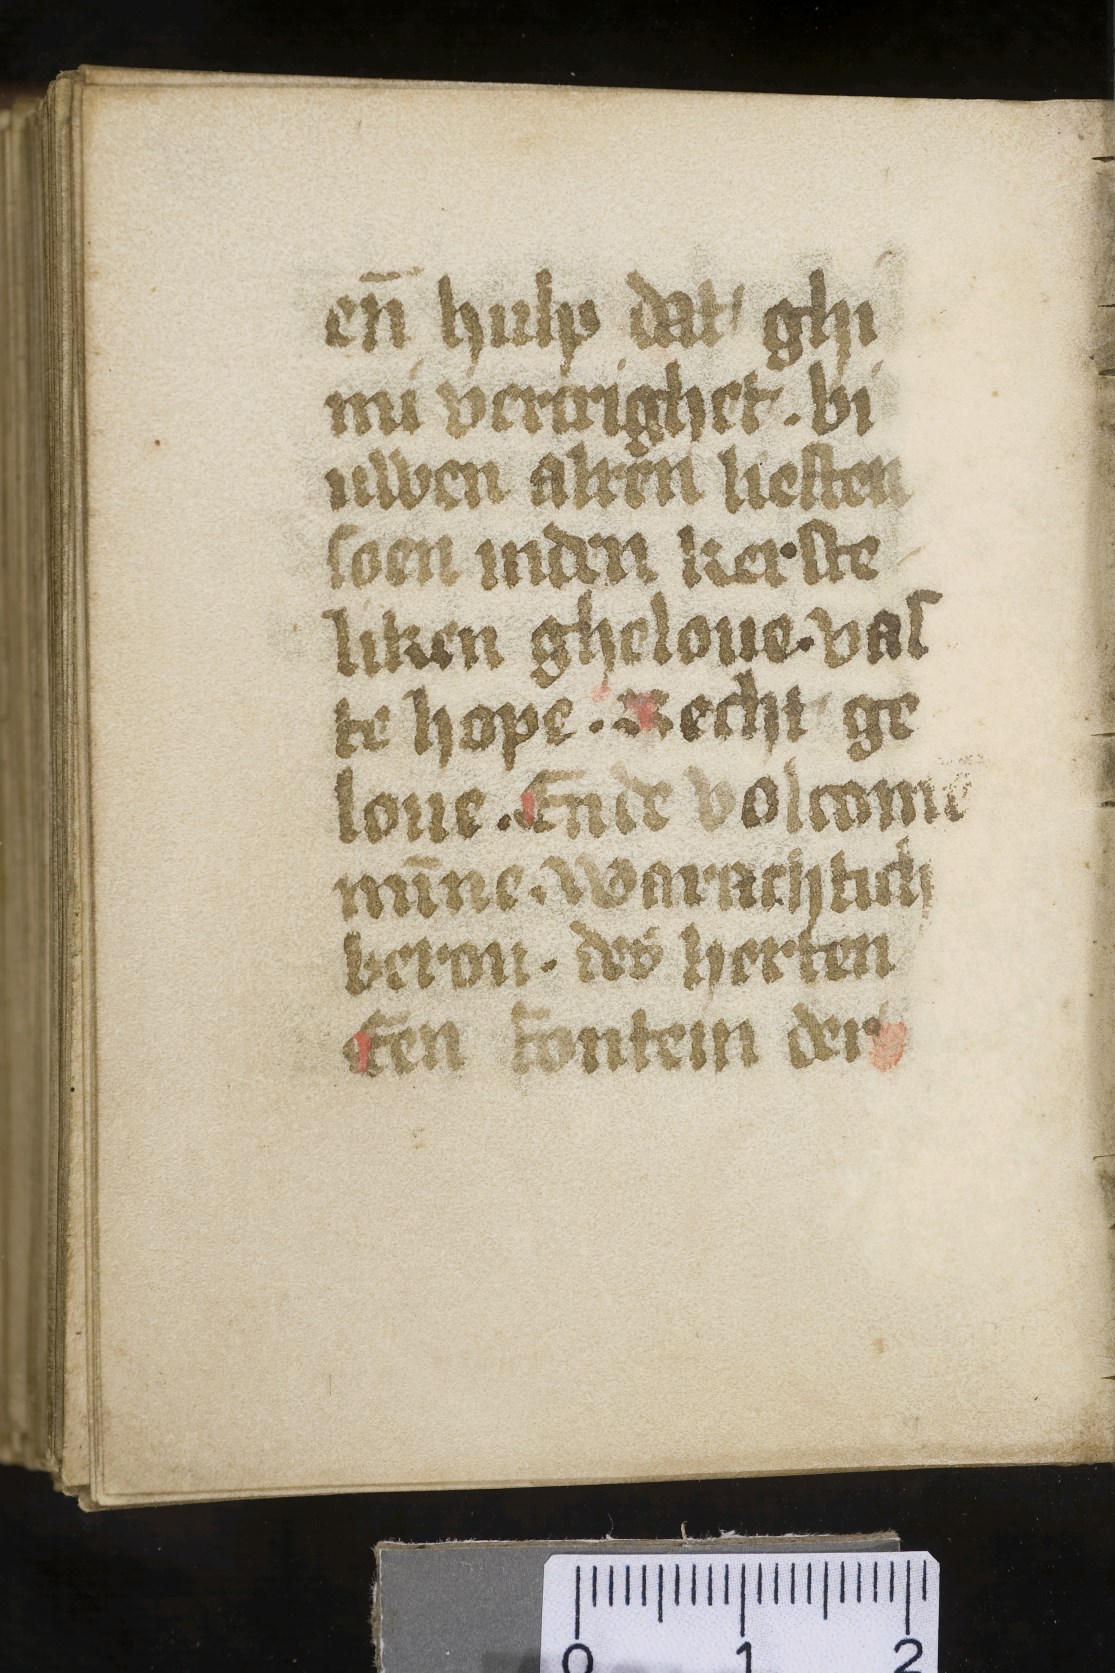 en̄ hulp dat ghi
mi vercrighet . bi
uwen alren liefsten
soen inden kerste
liken gheloue . vas
te hope . Recht ge
loue . Ende volcomē
mīne . Warachtich
berou . des herten
Een fontein der
0 1 2